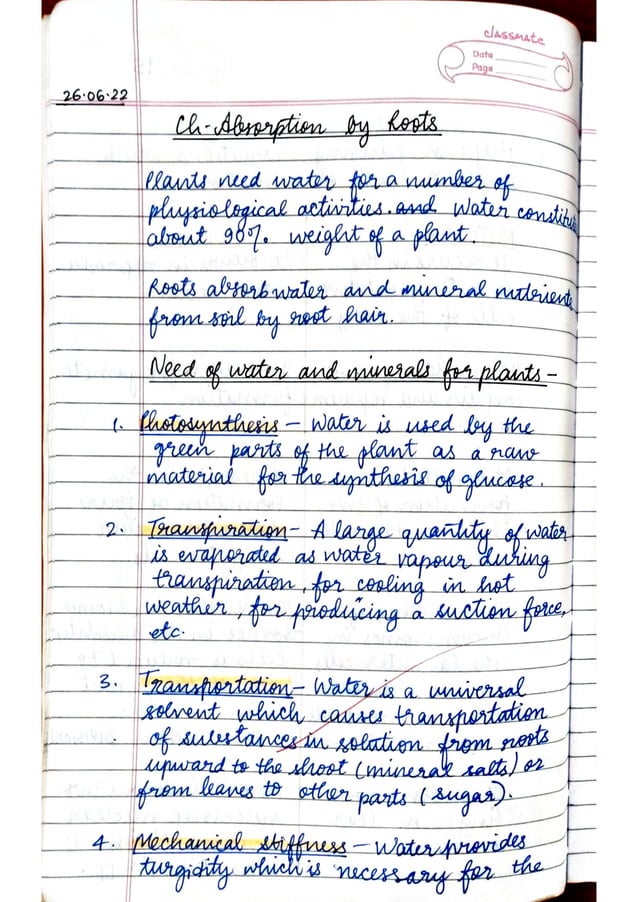 classmate
Date
Page
26.06.22
Ch-Absorption by Roots
Plants need water for a number of
physiological activities. and Water constitu
about 90% weight of a plant.
Roots absorb water and mineral nutrients
from soil by root hair.
Need of water and minerals for plants -
1. Photosynthesis - Water is used by the
green parts of the plant as a raw
material for the synthesis of glucose.
2. Transpiration - A large quantity of water
is evaporated as water vapour during
transpiration, for cooling in hot
weather, for producing a suction force,
etc.
3. Transportation - Water is a universal
solvent which causes transportation
of substances in solution from roots
upward to the shoot (mineral salts) or
from leaves to other parts (sugar).
4. Mechanical stiffness - Water provides
turgidity which is necessary for the